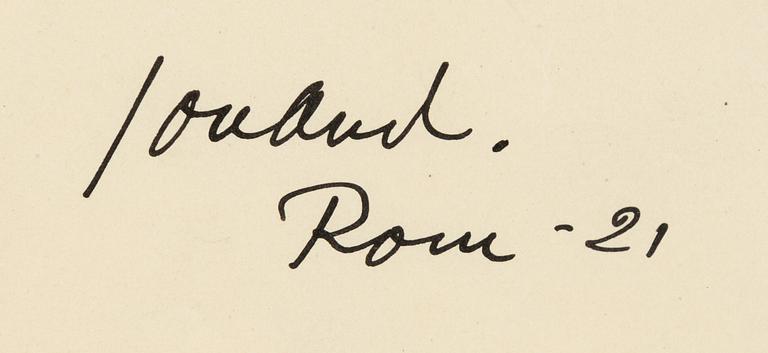 JonAnd.
Rom -21